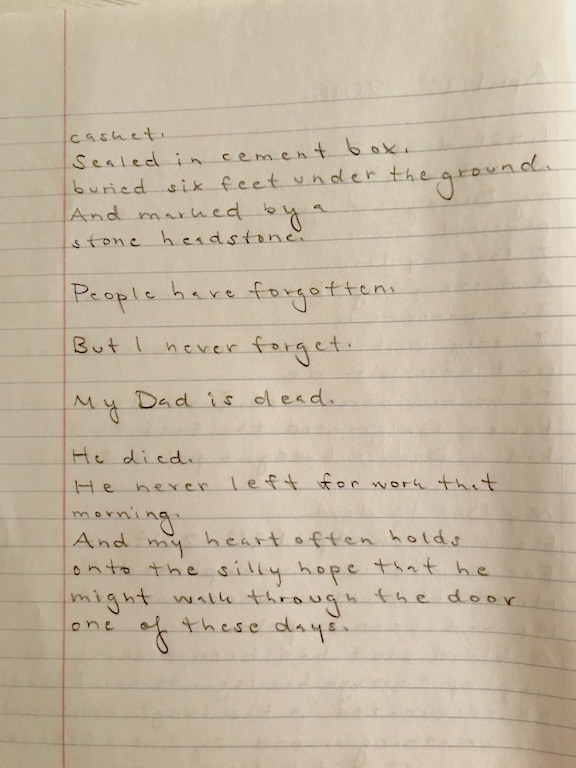 casket.
Sealed in cement box.
buried six feet under the ground.
And marked by a
stone headstone.
People have forgotten.
But I never forget.
My Dad is dead.
He died.
He never left for work that
morning.
And my heart often holds
onto the silly hope that he
might walk through the door
one of these days.